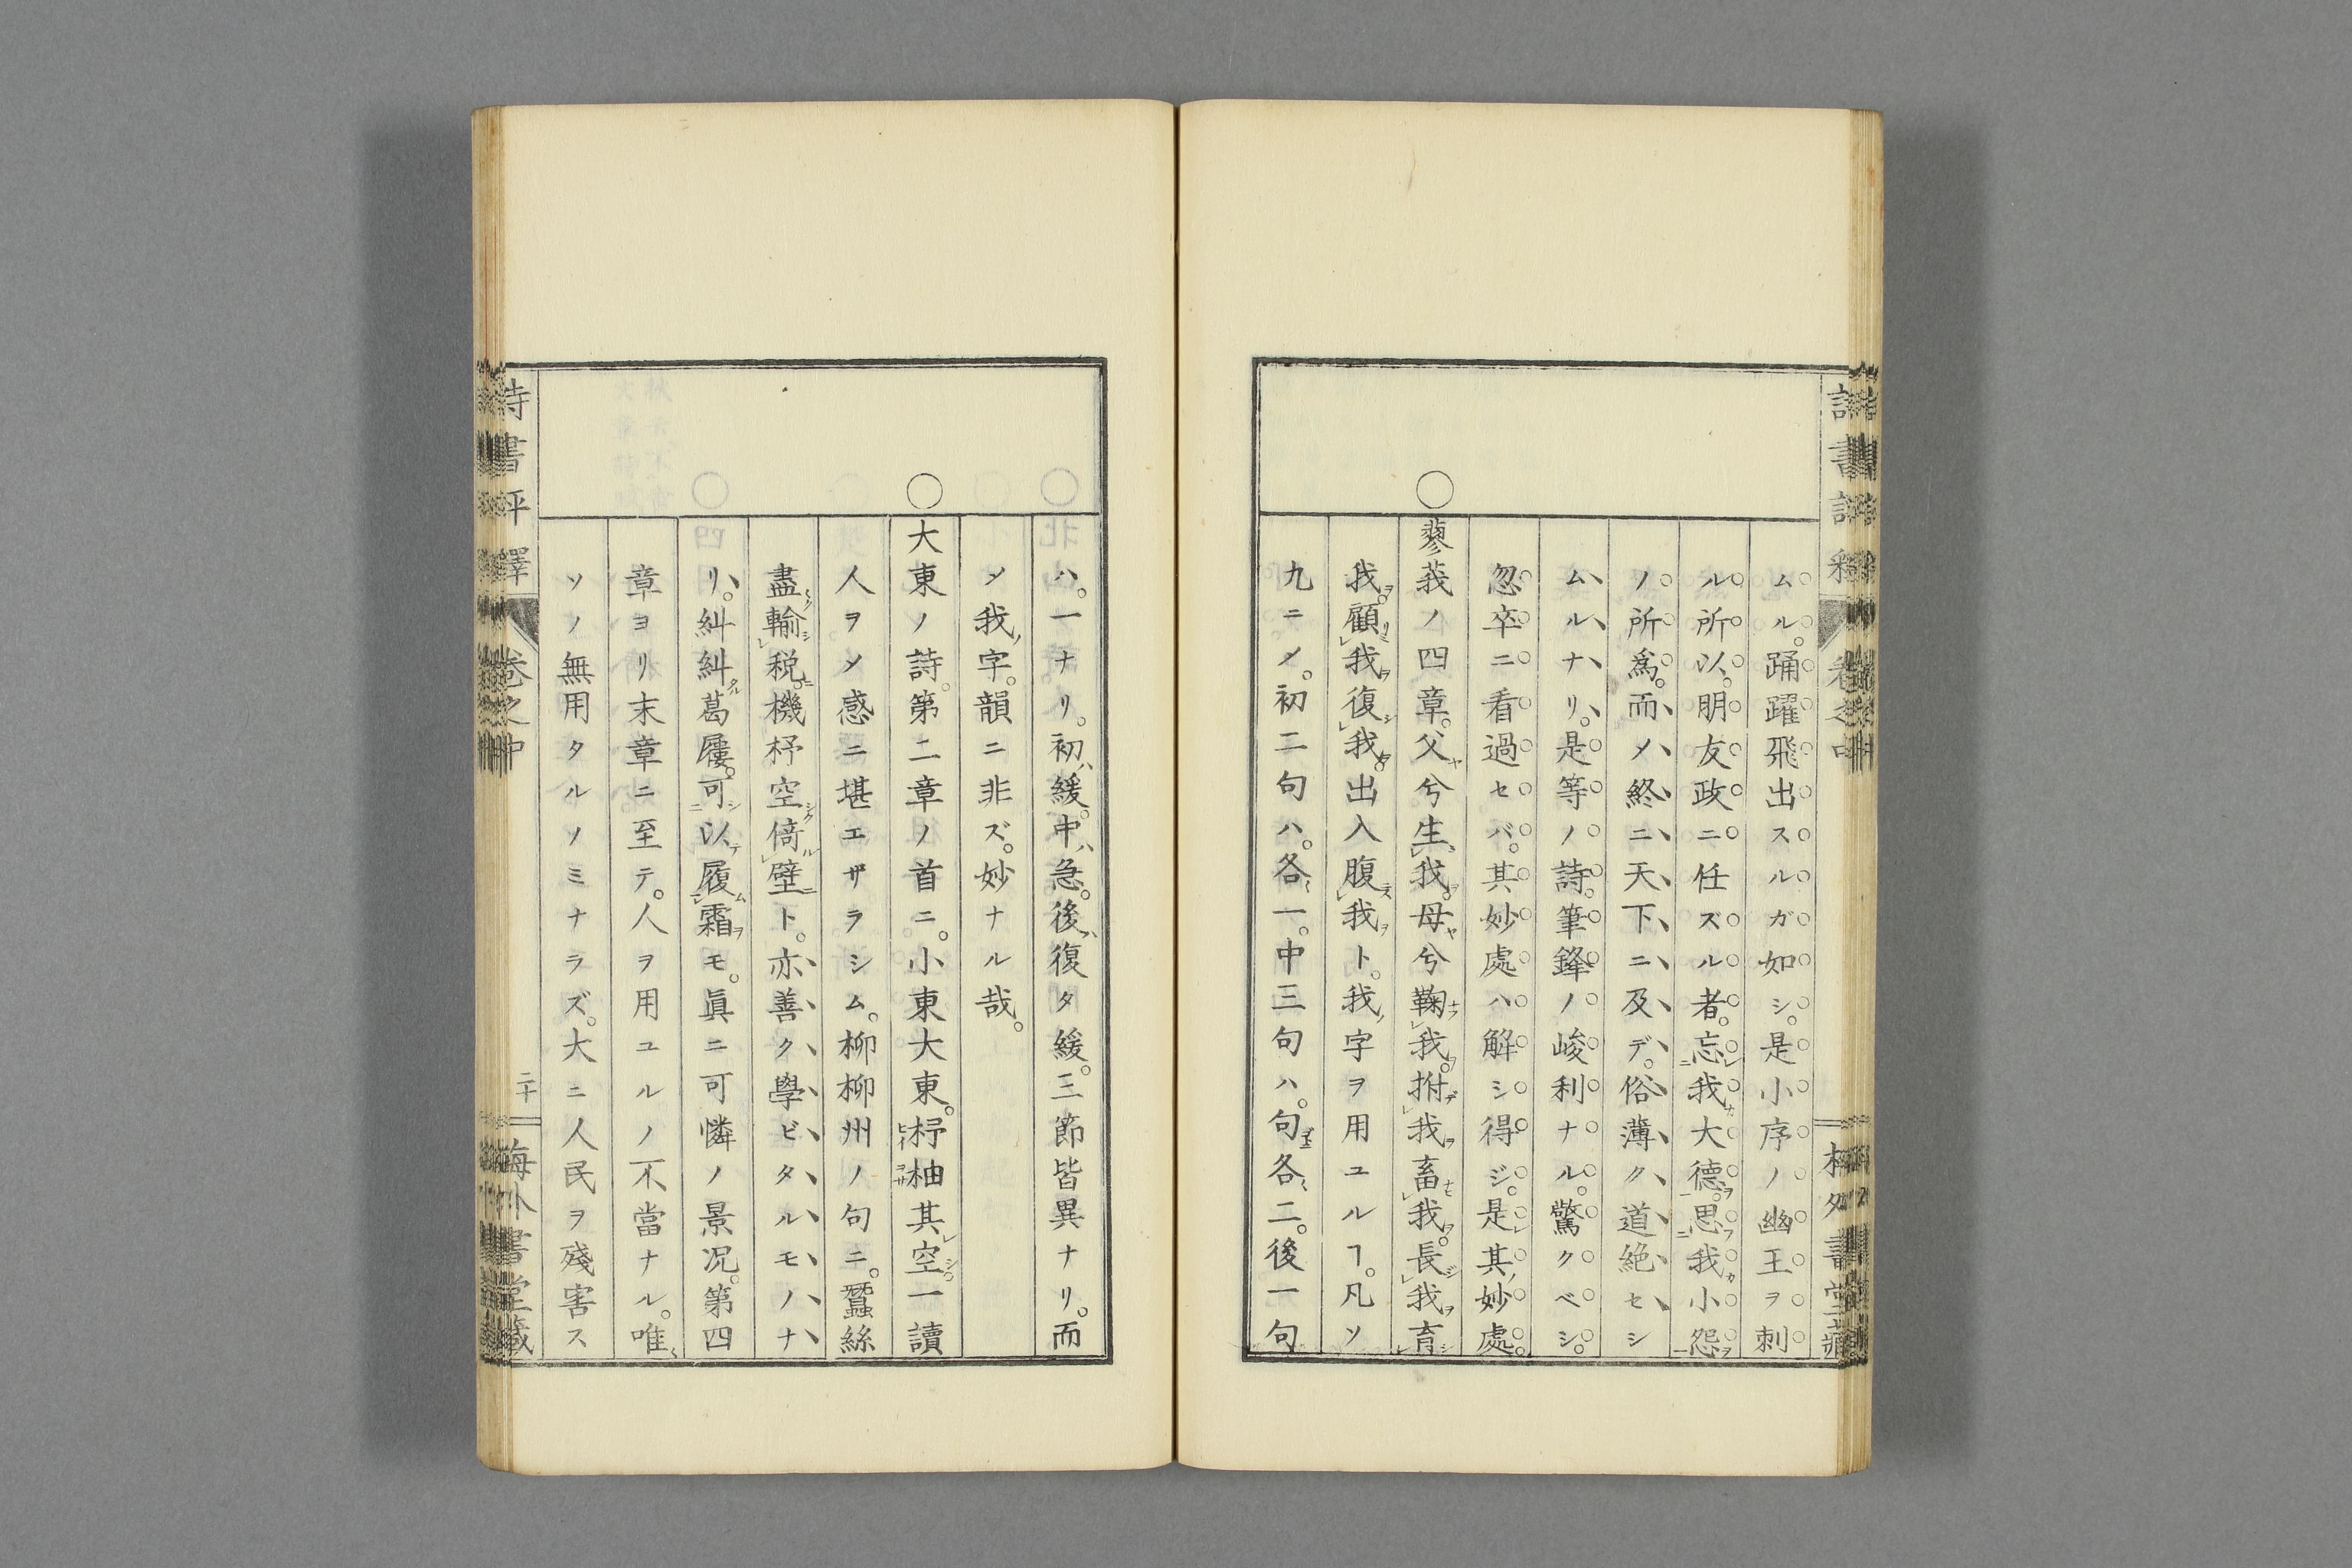 ムル。踊躍飛出スルガ如シ。是小序ノ幽王ヲ刺
ル所以。朋友政ニ任ズル者。忘我大德。思我小怨
ノ所爲。而メ終ニ天下ニ及デ。俗薄ク道絶セシ
ムルナリ。是等ノ詩。筆鋒ノ峻利ナル。驚クベシ。
忽卒ニ看過セバ。其妙處ハ解シ得ジ。是其妙處。
○蓼莪ノ四章。父兮生我。母兮鞠我。拊我畜我。長我育
我。顧我復我。出入腹我ト。我字ヲ用ユルヿ。凡ソ
九ニメ。初二句ハ。各一。中三句ハ。句各二。後一句
ハ。一ナリ。初緩。中急。後復タ緩。三節皆異ナリ。而
メ我字。韻ニ非ズ。妙ナル哉。
○大東ノ詩。第二章ノ首ニ。小東大東。杼柚其空。一讀
人ヲメ感ニ堪エザラシム。柳柳州ノ句ニ。蠶絲
盡輸税。機杼空倚壁ト。亦善ク學ビタルモノナ
リ。糾糾葛屨。可以履霜モ。眞ニ可憐ノ景况。第四
章ヨリ末章ニ至テ。人ヲ用ユルノ不當ナル。唯
ソノ無用タルノミナラズ。大ニ人民ヲ殘害ス
詩書評釋
卷之中
二十
海外書堂藏